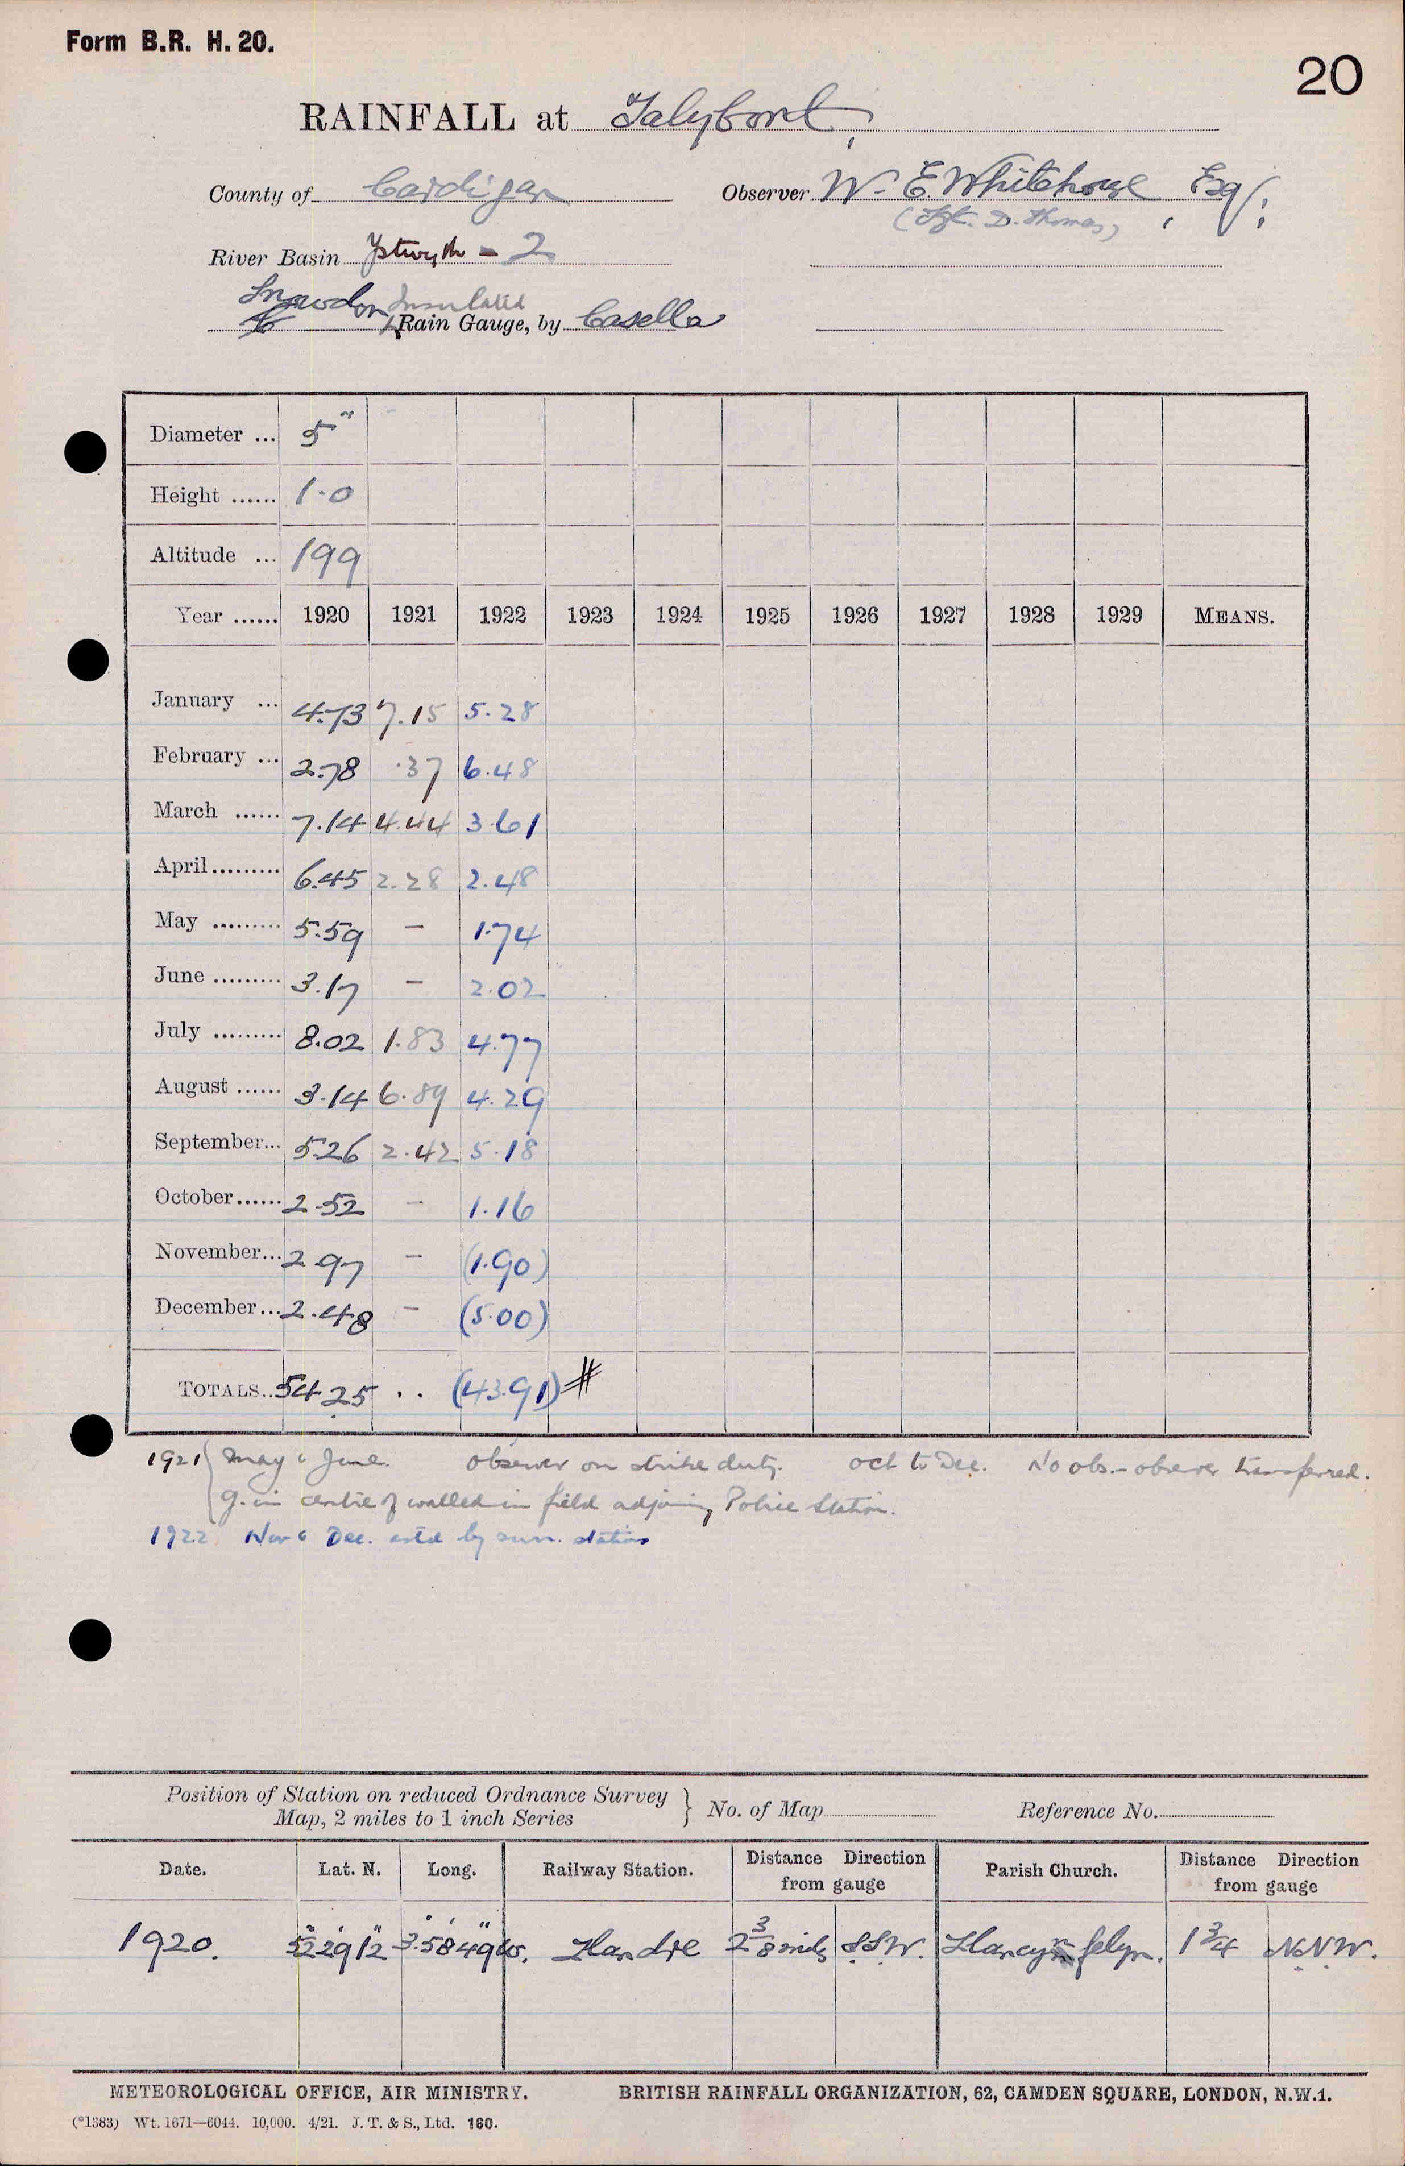 Form B.R. H. 20.
20
RAINFALL at Talybont,
County of Cardigan Observer W. E. Whitehouse, Esq;
(Sgt. D. Thomas)
River Basin Ystwyth = 2
Snowdon Insulated
Rain Gauge, by Casella
Diameter ... 5"
Height ...... 1.0
Altitude ... 199
Year ...... 1920 1921 1922 1923 1924 1925 1926 1927 1928 1929 MEANS.
January ... 4.73 7.15 5.28
February ... 2.78 .37 6.48
March ...... 7.14 4.44 3.61
April......... 6.45 2.28 2.48
May ......... 5.59 – 1.74
June ......... 3.17 – 2.02
July ......... 8.02 1.83 4.77
August ...... 3.14 6.89 4.29
September... 5.26 2.42 5.18
October...... 2.52 – 1.16
November... 2.97 – (1.90)
December... 2.48 – (5.00)
TOTALS.. 54.25 .. (43.91) #
1921 { May & June. observer on strike duty. Oct to Dec. No obs. – observer transferred.
g. in centre of walled in field adjoining Police Station.
1922 Nov & Dec. estd by surr. stations
Position of Station on reduced Ordnance Survey } No. of Map Reference No.
Map, 2 miles to 1 inch Series
Date. Lat. N. Long. Railway Station. Distance Direction from gauge Parish Church. Distance Direction from gauge
1920. 52°29'12" 3°58'49"W. Llandre 2 3/8 mils S.S.W. Llancynfelyn. 1 3/4 N.N.W.
METEOROLOGICAL OFFICE, AIR MINISTRY. BRITISH RAINFALL ORGANIZATION, 62, CAMDEN SQUARE, LONDON, N.W.1.
(*1383) Wt. 1671—6044. 10,000. 4/21. J. T. & S., Ltd. 160.